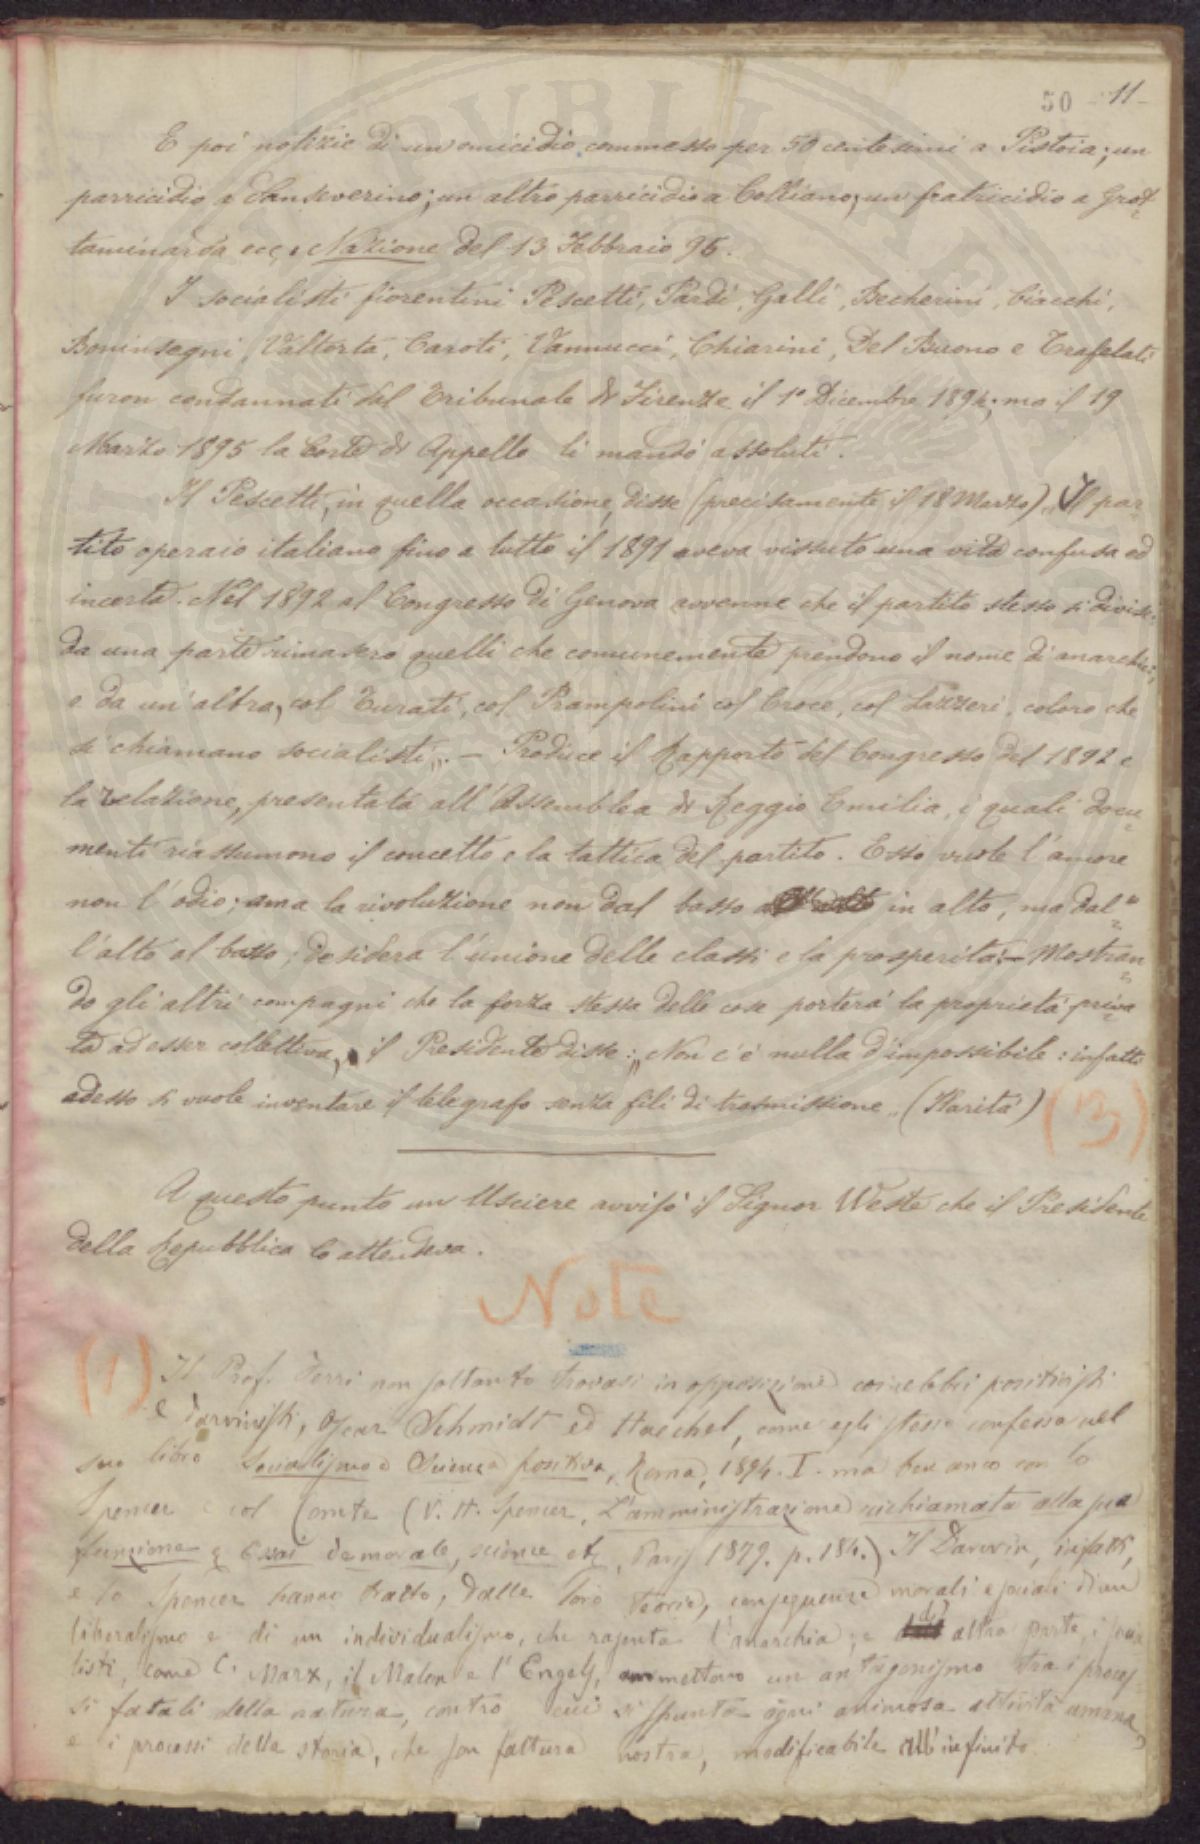 50 - 11 -
E poi notizie di un omicidio commesso per 50 centesimi a Pistoia; un
parricidio a Sanseverino; un altro parricidio a Colliano; un fratricidio a Grot=
taminarda ecc. Nazione del 13 Febbraio 95.
I socialisti fiorentini Pescetti, Pardi, Galli, Becherini, Ciacchi,
Boninsegni, Valtorta, Caroti, Vannucci, Chiarini, Del Buono e Trafelati
furon condannati dal Tribunale di Firenze il 1° Dicembre 1894; ma il 19
Marzo 1895 la Corte di Appello li mandò assoluti.
Il Pescetti, in quella occasione, disse (precisamente il 18 Marzo) „Il par=
tito operaio italiano fino a tutto il 1891 aveva vissuto una vita confusa ed
incerta. Nel 1892 al Congresso di Genova avvenne che il partito stesso si divise:
da una parte rimasero quelli che comunemente prendono il nome di anarchici;
e da un'altra, col Turati, col Prampolini col Croce, col Lazzeri, coloro che
si chiamano socialisti„. — Produce il Rapporto del Congresso del 1892 e
la relazione, presentata all'Assemblea di Reggio Emilia, i quali docu=
menti riassumono il concetto e la tattica del partito. Esso vuole l'amore
non l'odio; ama la rivoluzione non dal basso in alto, ma dal=
l'alto al basso; desidera l'unione delle classi e la prosperità. — Mostran=
do gli altri compagni che la forza stessa delle cose porterà la proprietà priva=
ta ad esser collettiva, il Presidente disse: „Non c'è nulla d'impossibile: infatti
adesso si vuole inventare il telegrafo senza fili di trasmissione„ (Ilarità) (13)
A questo punto un Usciere avvisò il Signor Weste che il Presidente
della Repubblica lo attendeva.
Note
(1) Il Prof. Ferri non soltanto trovasi in opposizione coi celebri positivisti
e darvinisti, Oscar Schmidt ed Haeckel, come egli stesso confessa nel
suo libro Socialismo e Scienza positiva, Roma, 1894. I. ma ben anco con lo
Spencer e col Comte (V. H. Spencer, L'amministrazione richiamata alla sua
funzione e Essai de morale, science etc, Paris 1879. p. 184.) Il Darwin, infatti,
e lo Spencer hanno tratto, dalle loro teorie, conseguenze morali e sociali d'un
liberalismo e di un individualismo, che rasenta l'anarchia; e d'altra parte, i socia
listi, come C. Marx, il Malon e l'Engels, ammettono un antagonismo tra i proces=
si fatali della natura, contro cui si spunta ogni animosa attività umana,
e i processi della storia, che son fattura nostra, modificabile all'infinito